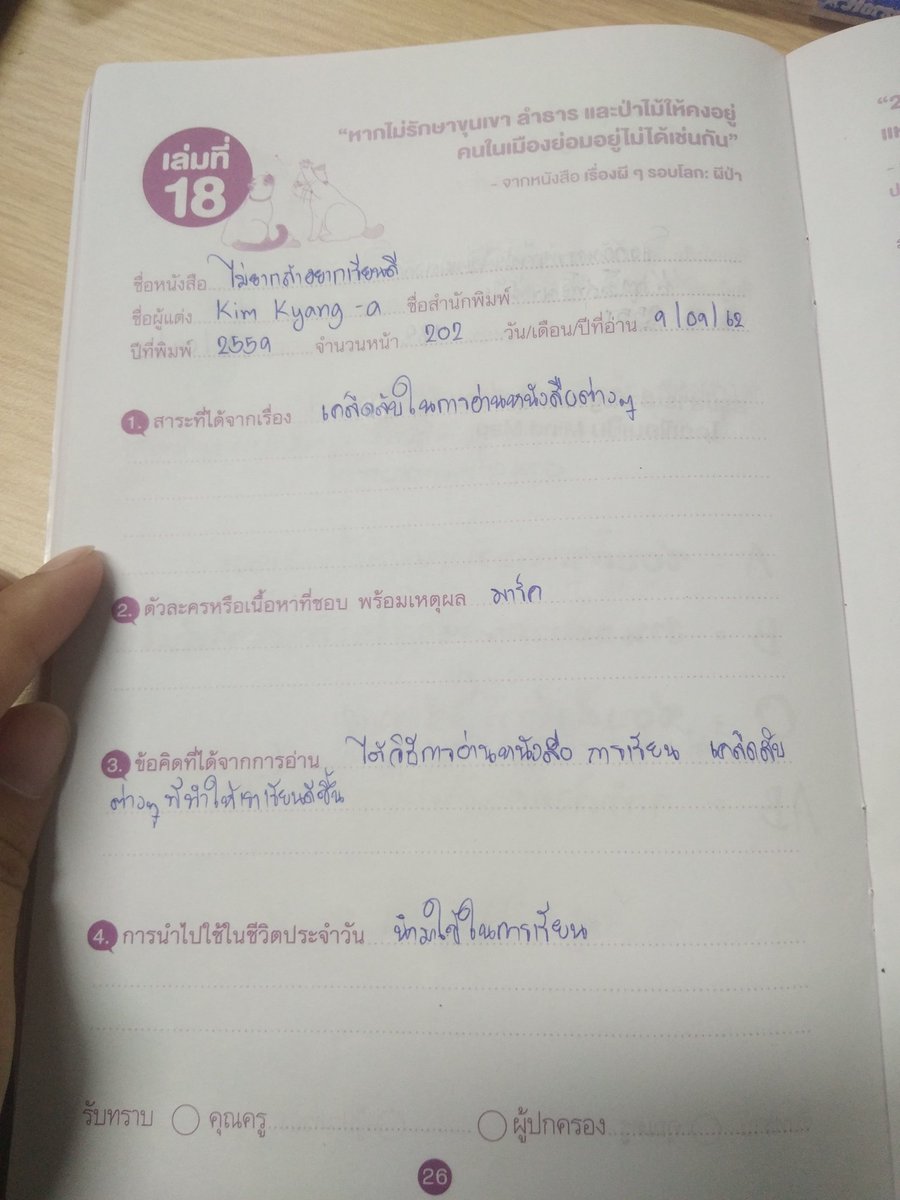 เล่มที่
18
“หากไม่รักษาขุนเขา ลำธาร และป่าไม้ให้คงอยู่
คนในเมืองย่อมอยู่ไม่ได้เช่นกัน”
- จากหนังสือ เรื่องผี ๆ รอบโลก: ผีป่า
ชื่อหนังสือ ไม่ยากถ้าอยากเรียนดี
ชื่อผู้แต่ง Kim Kyang-a ชื่อสำนักพิมพ์
ปีที่พิมพ์ 2559 จำนวนหน้า 202 วัน/เดือน/ปีที่อ่าน 9/09/62
1. สาระที่ได้จากเรื่อง เคล็ดลับในการอ่านหนังสือต่างๆ
2. ตัวละครหรือเนื้อหาที่ชอบ พร้อมเหตุผล มาร์ค
3. ข้อคิดที่ได้จากการอ่าน ได้วิธีการอ่านหนังสือ การเรียน เคล็ดลับ
ต่างๆ ที่ทำให้เราเรียนดีขึ้น
4. การนำไปใช้ในชีวิตประจำวัน นำมาใช้ในการเรียน
รับทราบ คุณครู ผู้ปกครอง
26